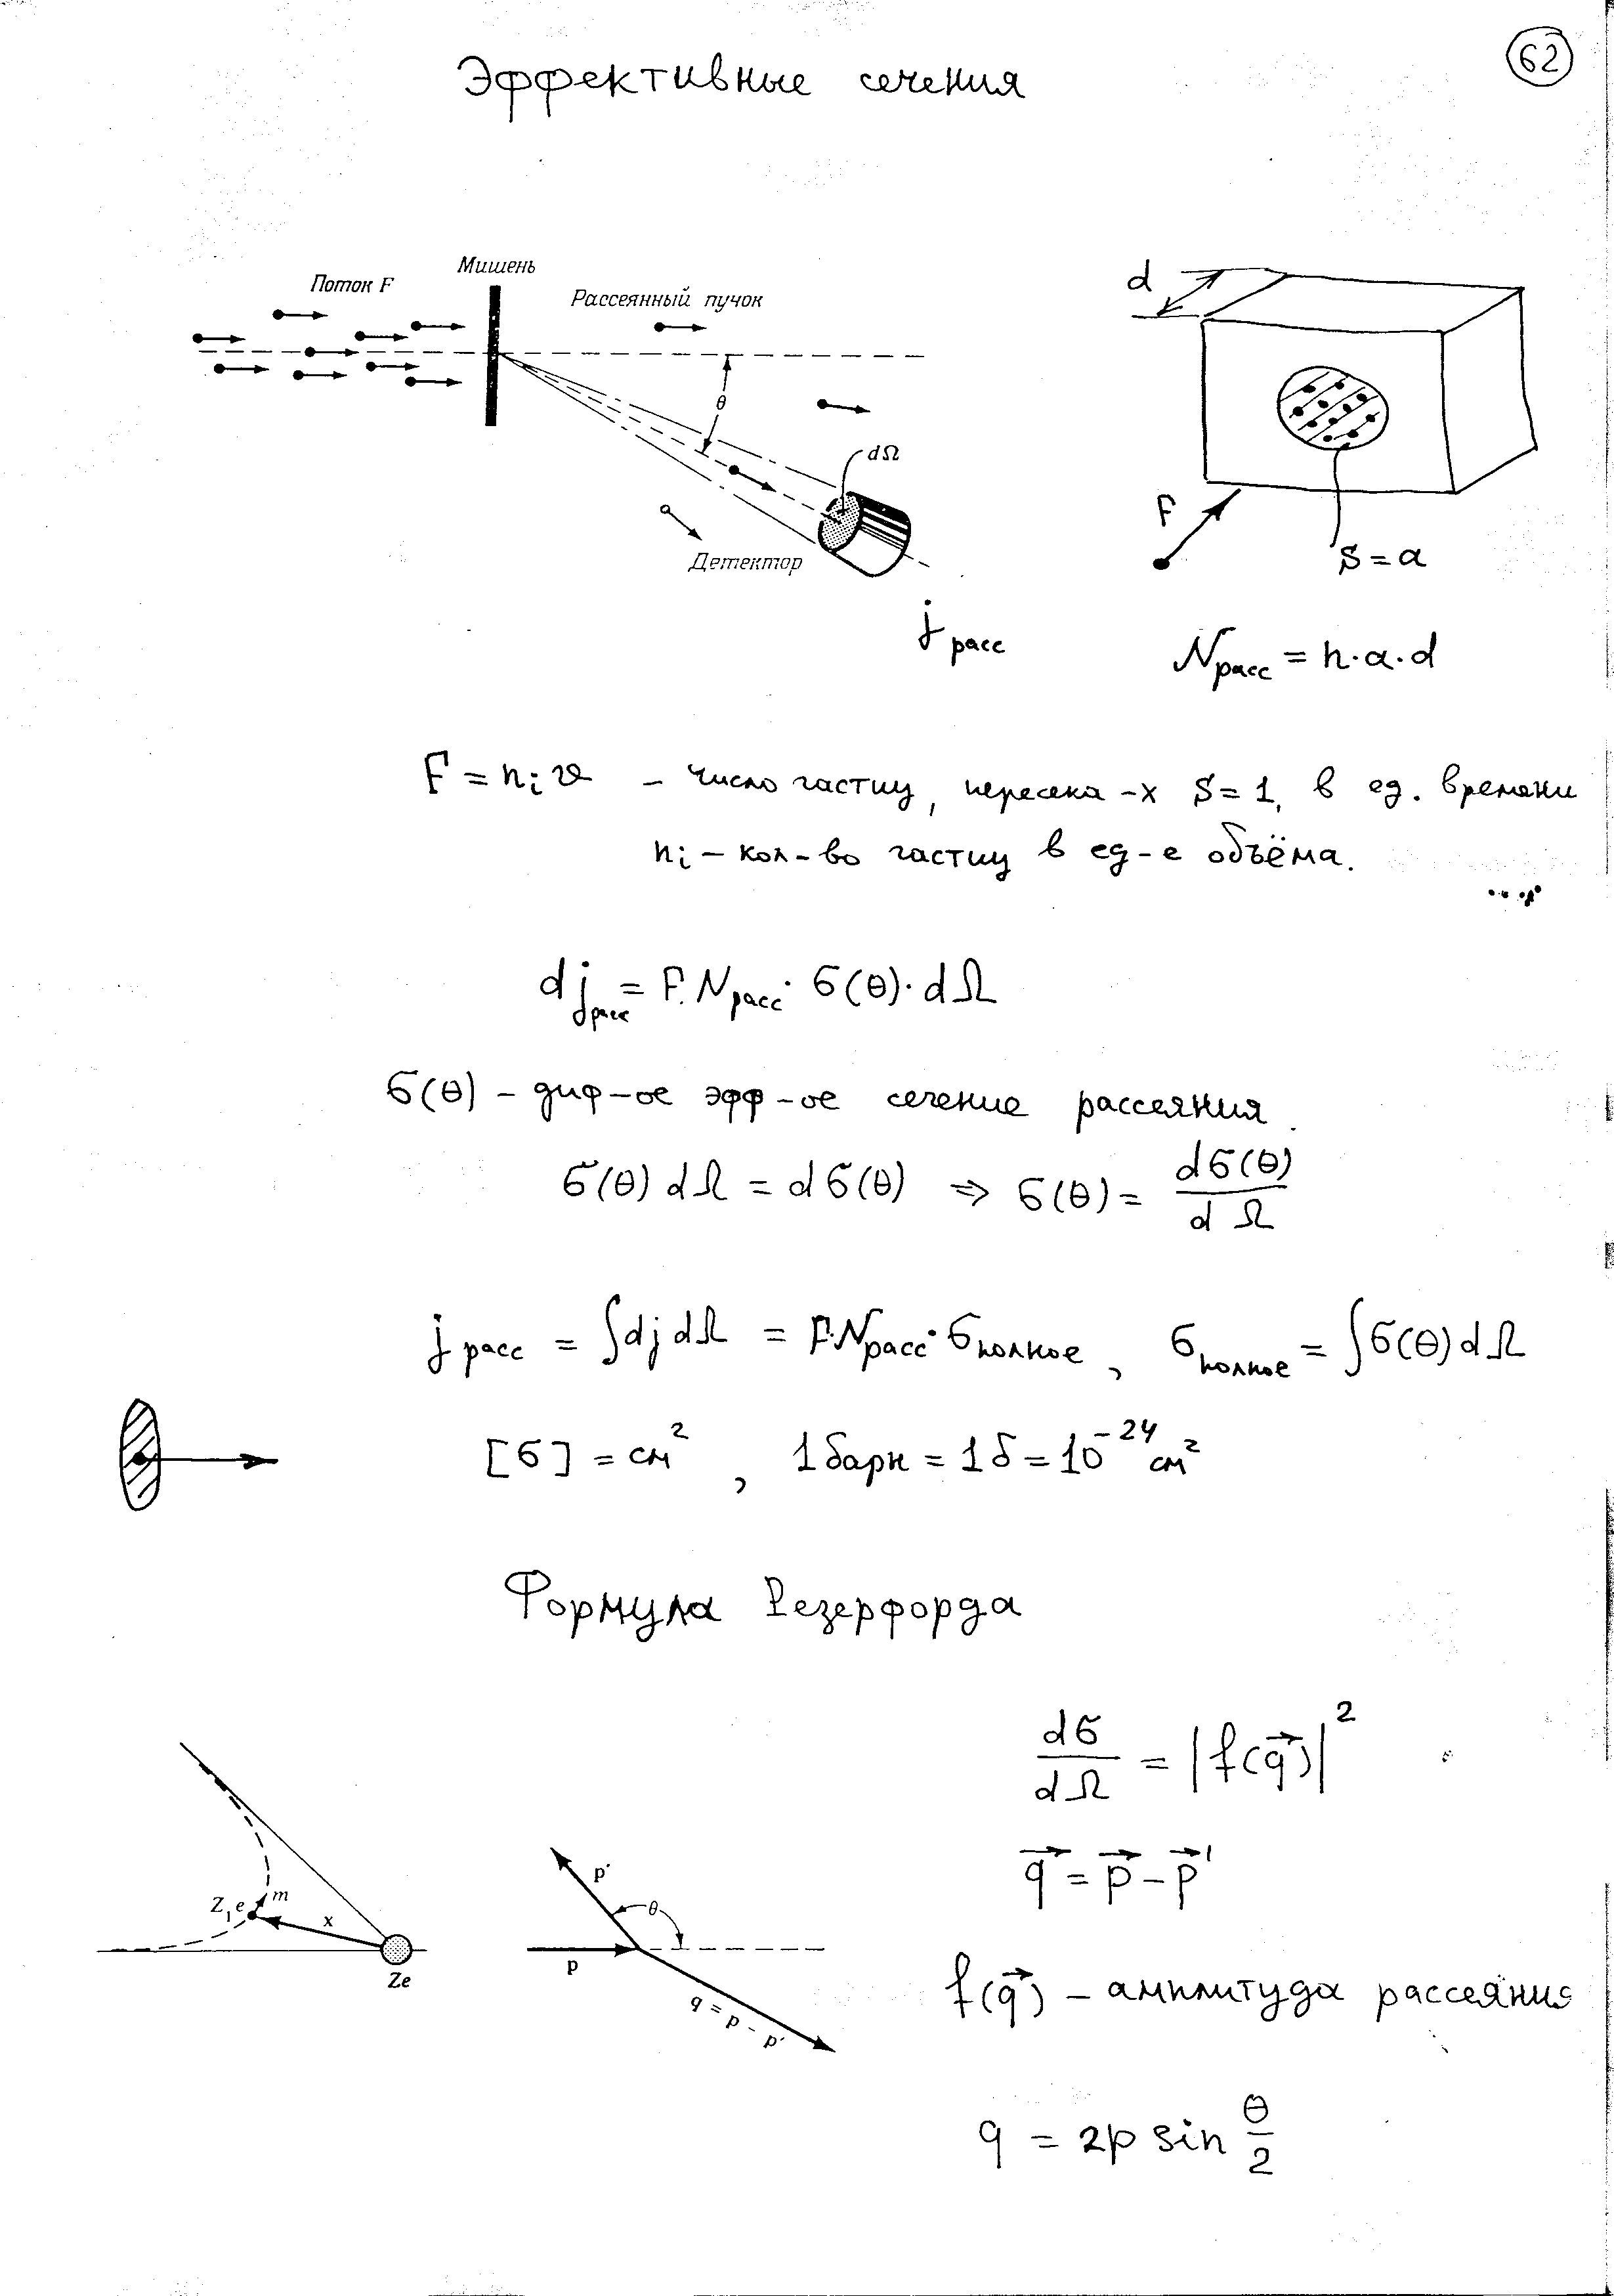 62
Эффективные сечения
Поток F
Мишень
Рассеянный пучок
θ
dΩ
Детектор
j расс
d
F
S = a
Nрасс = n·a·d
F = nᵢ v – число частиц, пересека-х S = 1, в ед. времени
nᵢ – кол-во частиц в ед-е объёма.
djрасс = F·Nрасс·σ(θ)·dΩ
σ(θ) – диф-ое эфф-ое сечение рассеяния
σ(θ) dΩ = dσ(θ) ⇒ σ(θ) = dσ(θ)/dΩ
jрасс = ∫dj dΩ = F·Nрасс·σполное, σполное = ∫σ(θ) dΩ
[σ] = см², 1 барн = 1 б = 10⁻²⁴ см²
Формула Резерфорда
dσ/dΩ = |f(q⃗)|²
q⃗ = p⃗ – p⃗'
Z₁e
m
x
Ze
p'
θ
p
q = p – p'
f(q⃗) – амплитуда рассеяния
q = 2p sin θ/2